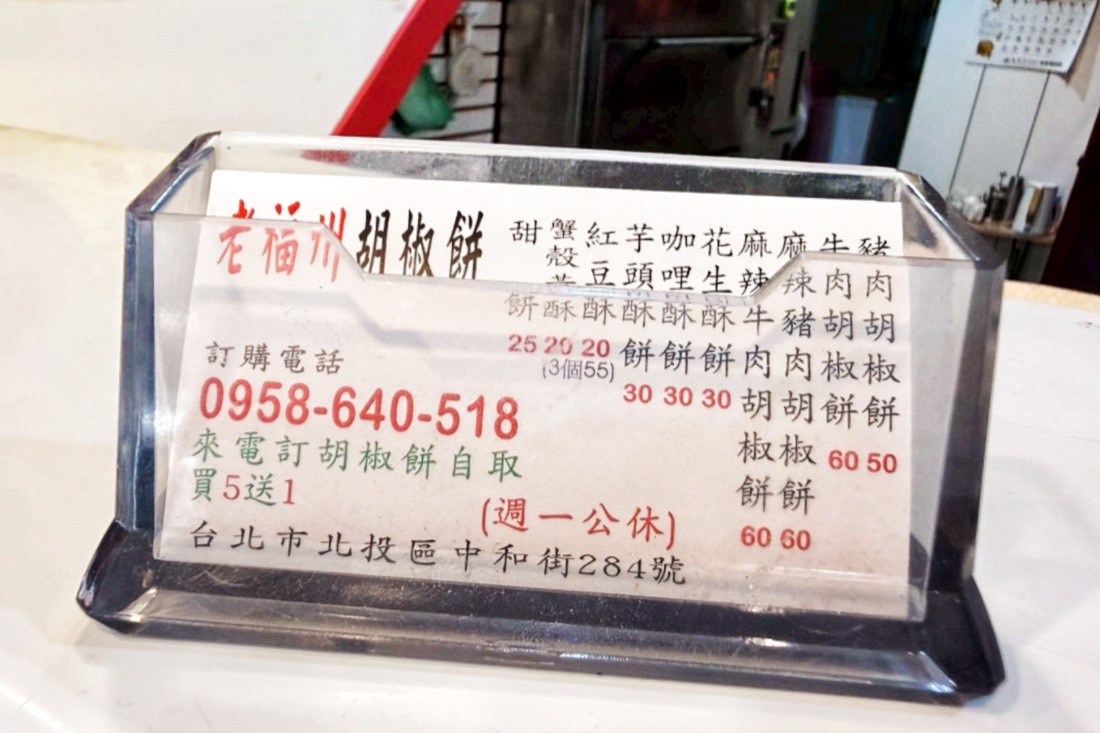 老福州胡椒餅
豬肉胡椒餅 50
牛肉胡椒餅 60
麻辣豬肉胡椒餅 60
麻辣牛肉胡椒餅 60
花生酥餅 30
咖哩酥餅 30
芋頭酥餅 30
紅豆酥 20
蟹殼黃酥 20
(3個55)
甜餅 25
訂購電話
0958-640-518
來電訂胡椒餅自取
買5送1
(週一公休)
台北市北投區中和街284號